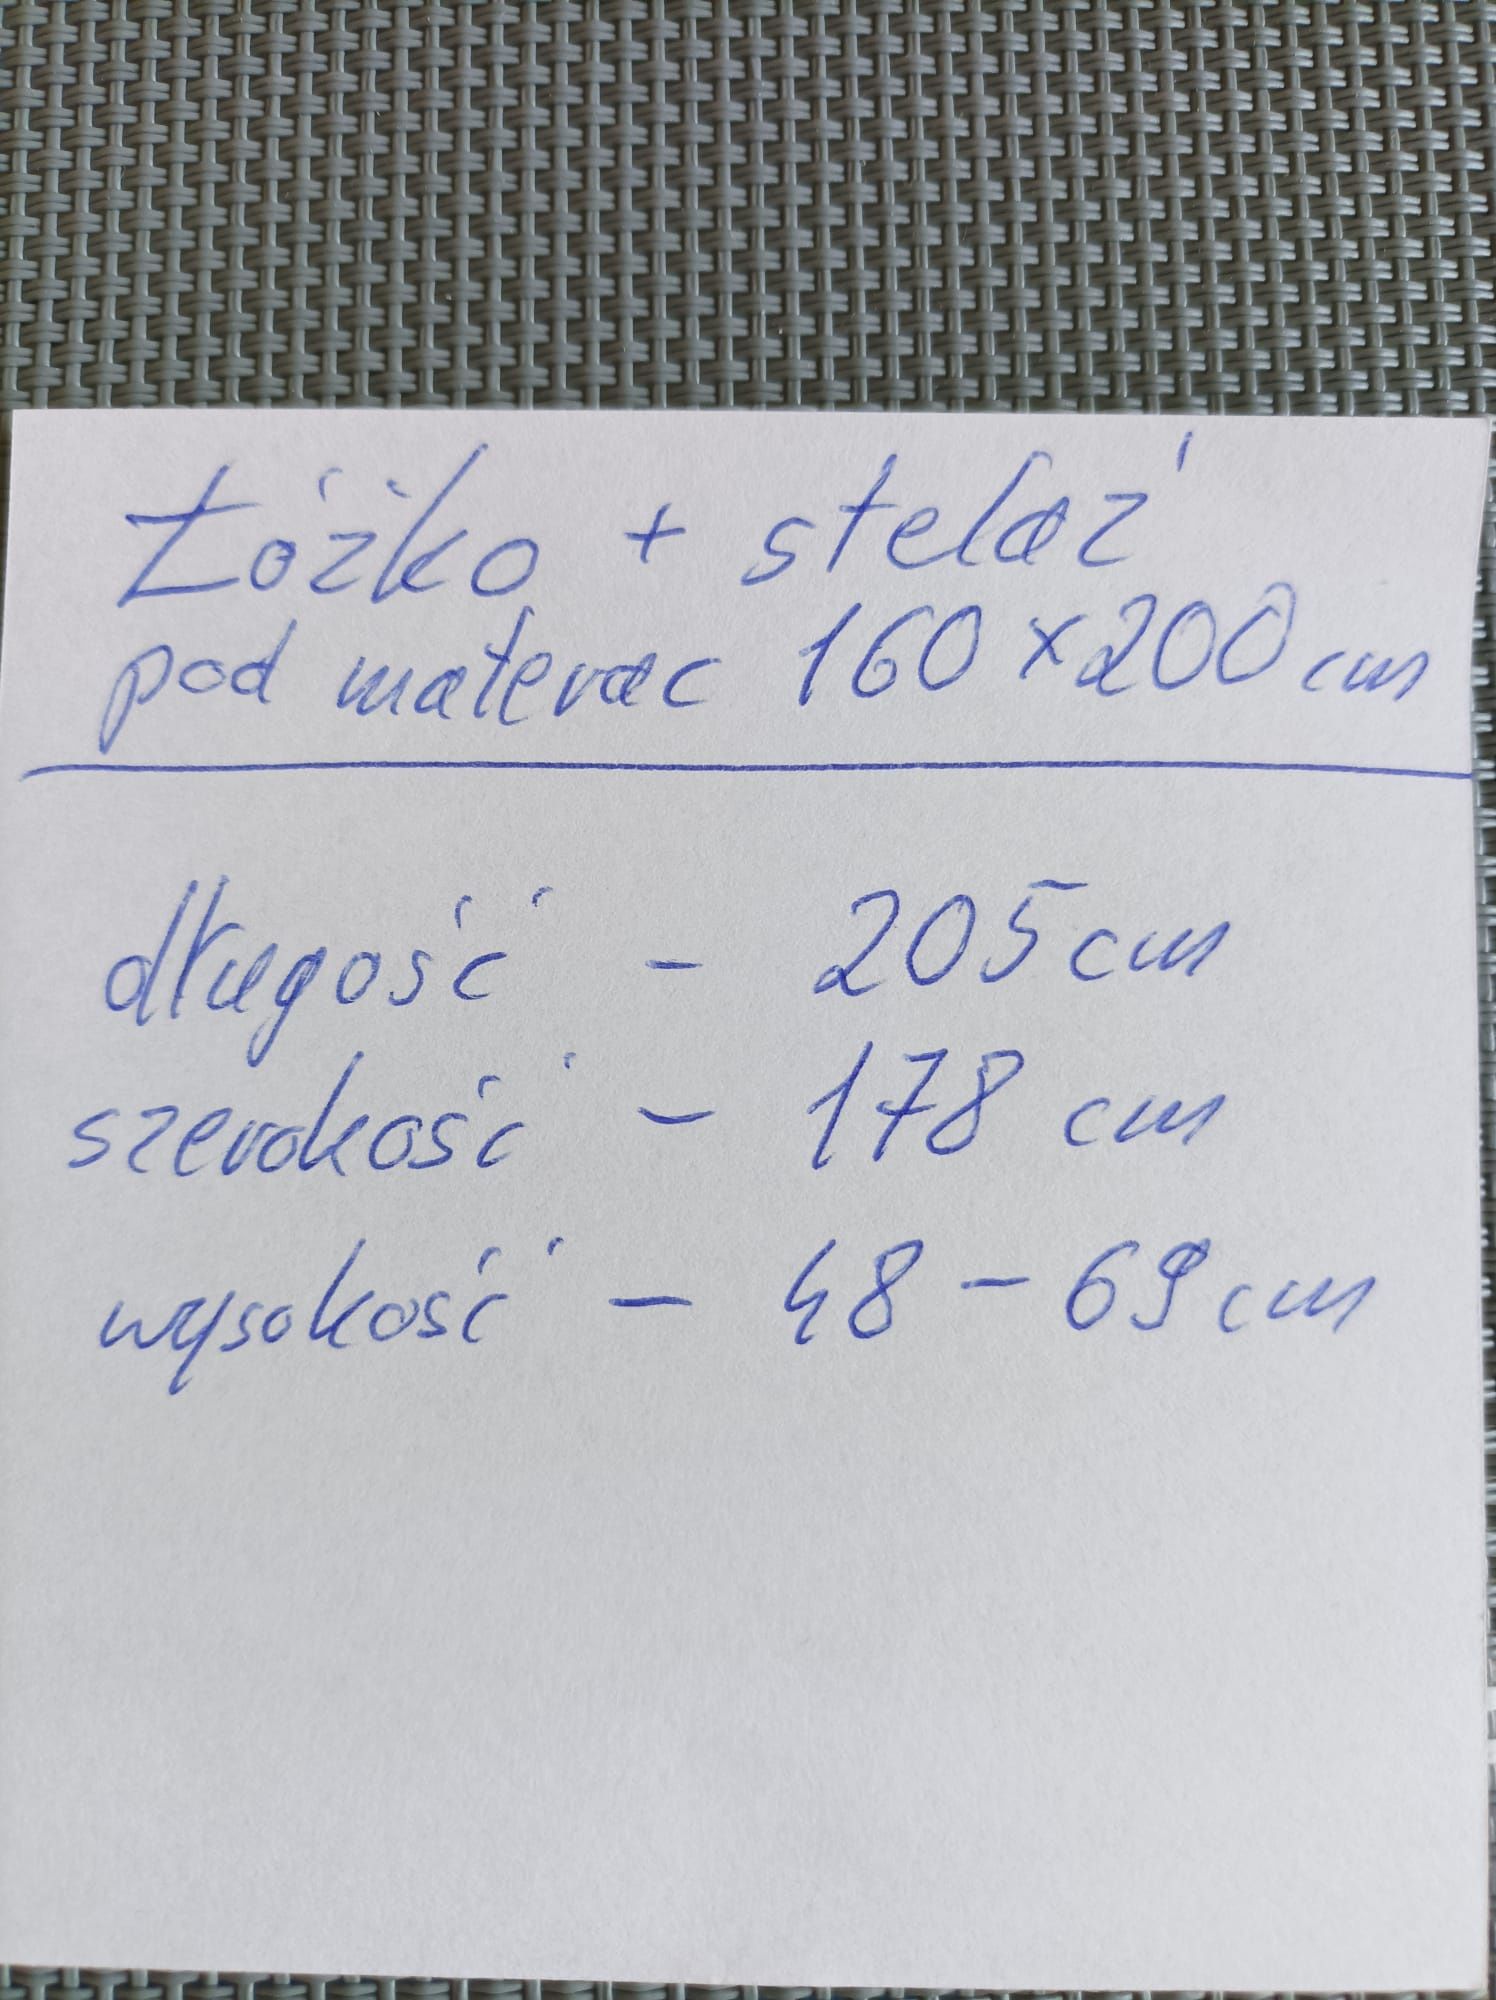 Łóżko + stelaż
pod materac 160 x 200 cm
długość - 205 cm
szerokość - 178 cm
wysokość - 48 - 69 cm